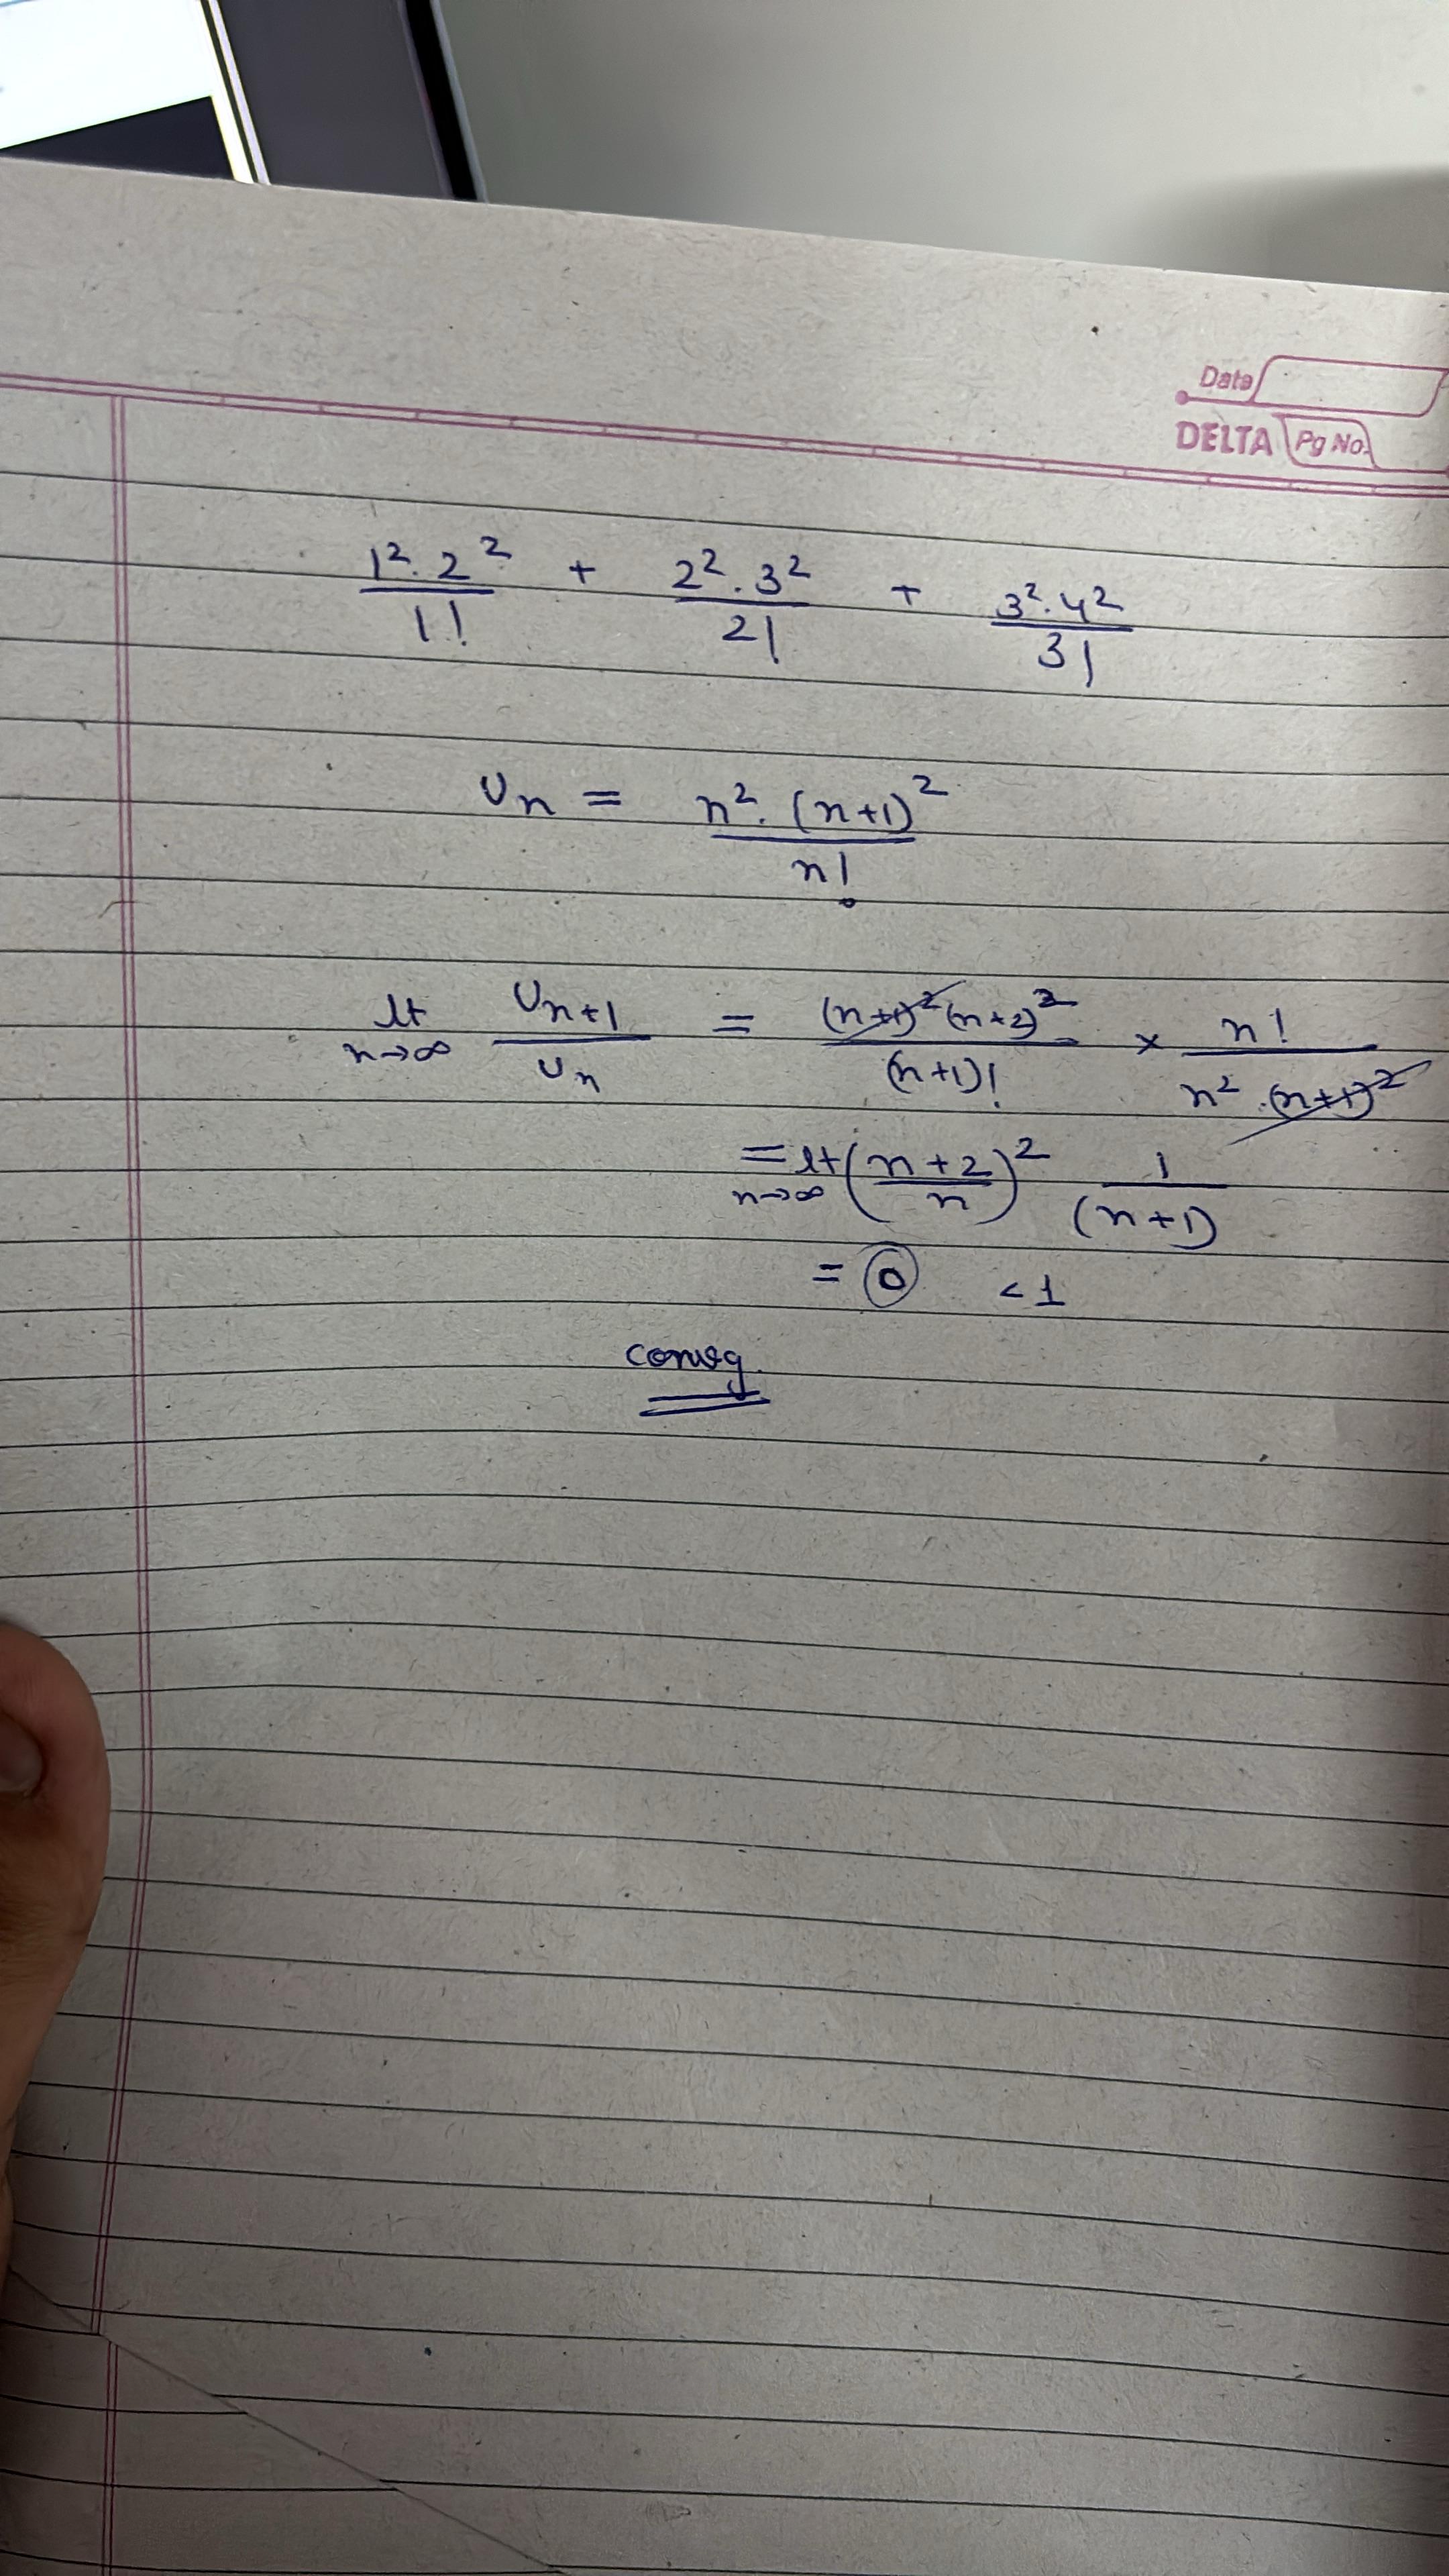 Date
DELTA Pg No.
1². 2² / 1! + 2² . 3² / 2! + 3². 4² / 3!
Un = n². (n+1)² / n!
lt n→∞ Un+1 / Un = (n+1)² (n+2)² / (n+1)! × n! / n² . (n+1)²
= lt n→∞ (n+2 / n)² 1 / (n+1)
= 0 < 1
converg.